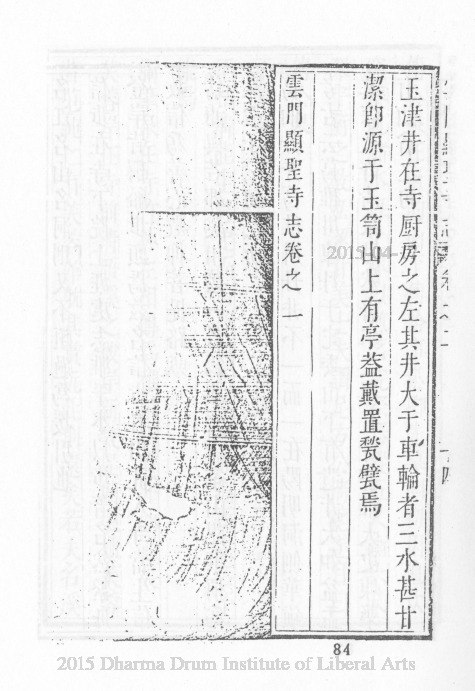 玉津井在寺厨房之左其井大于車輪者三水甚甘
潔卽源于玉笥山上有亭葢戴置甃甓焉
雲門顯聖寺志卷之一
84
2015 Dharma Drum Institute of Liberal Arts